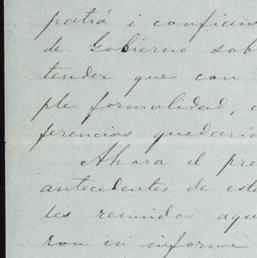 patia i confian
de Gobierno sob
tender que con
ple formalidad,
ferencias quedaria
Ahora el pre
antecedentes de esta
les reunidos aqu
ron en informe